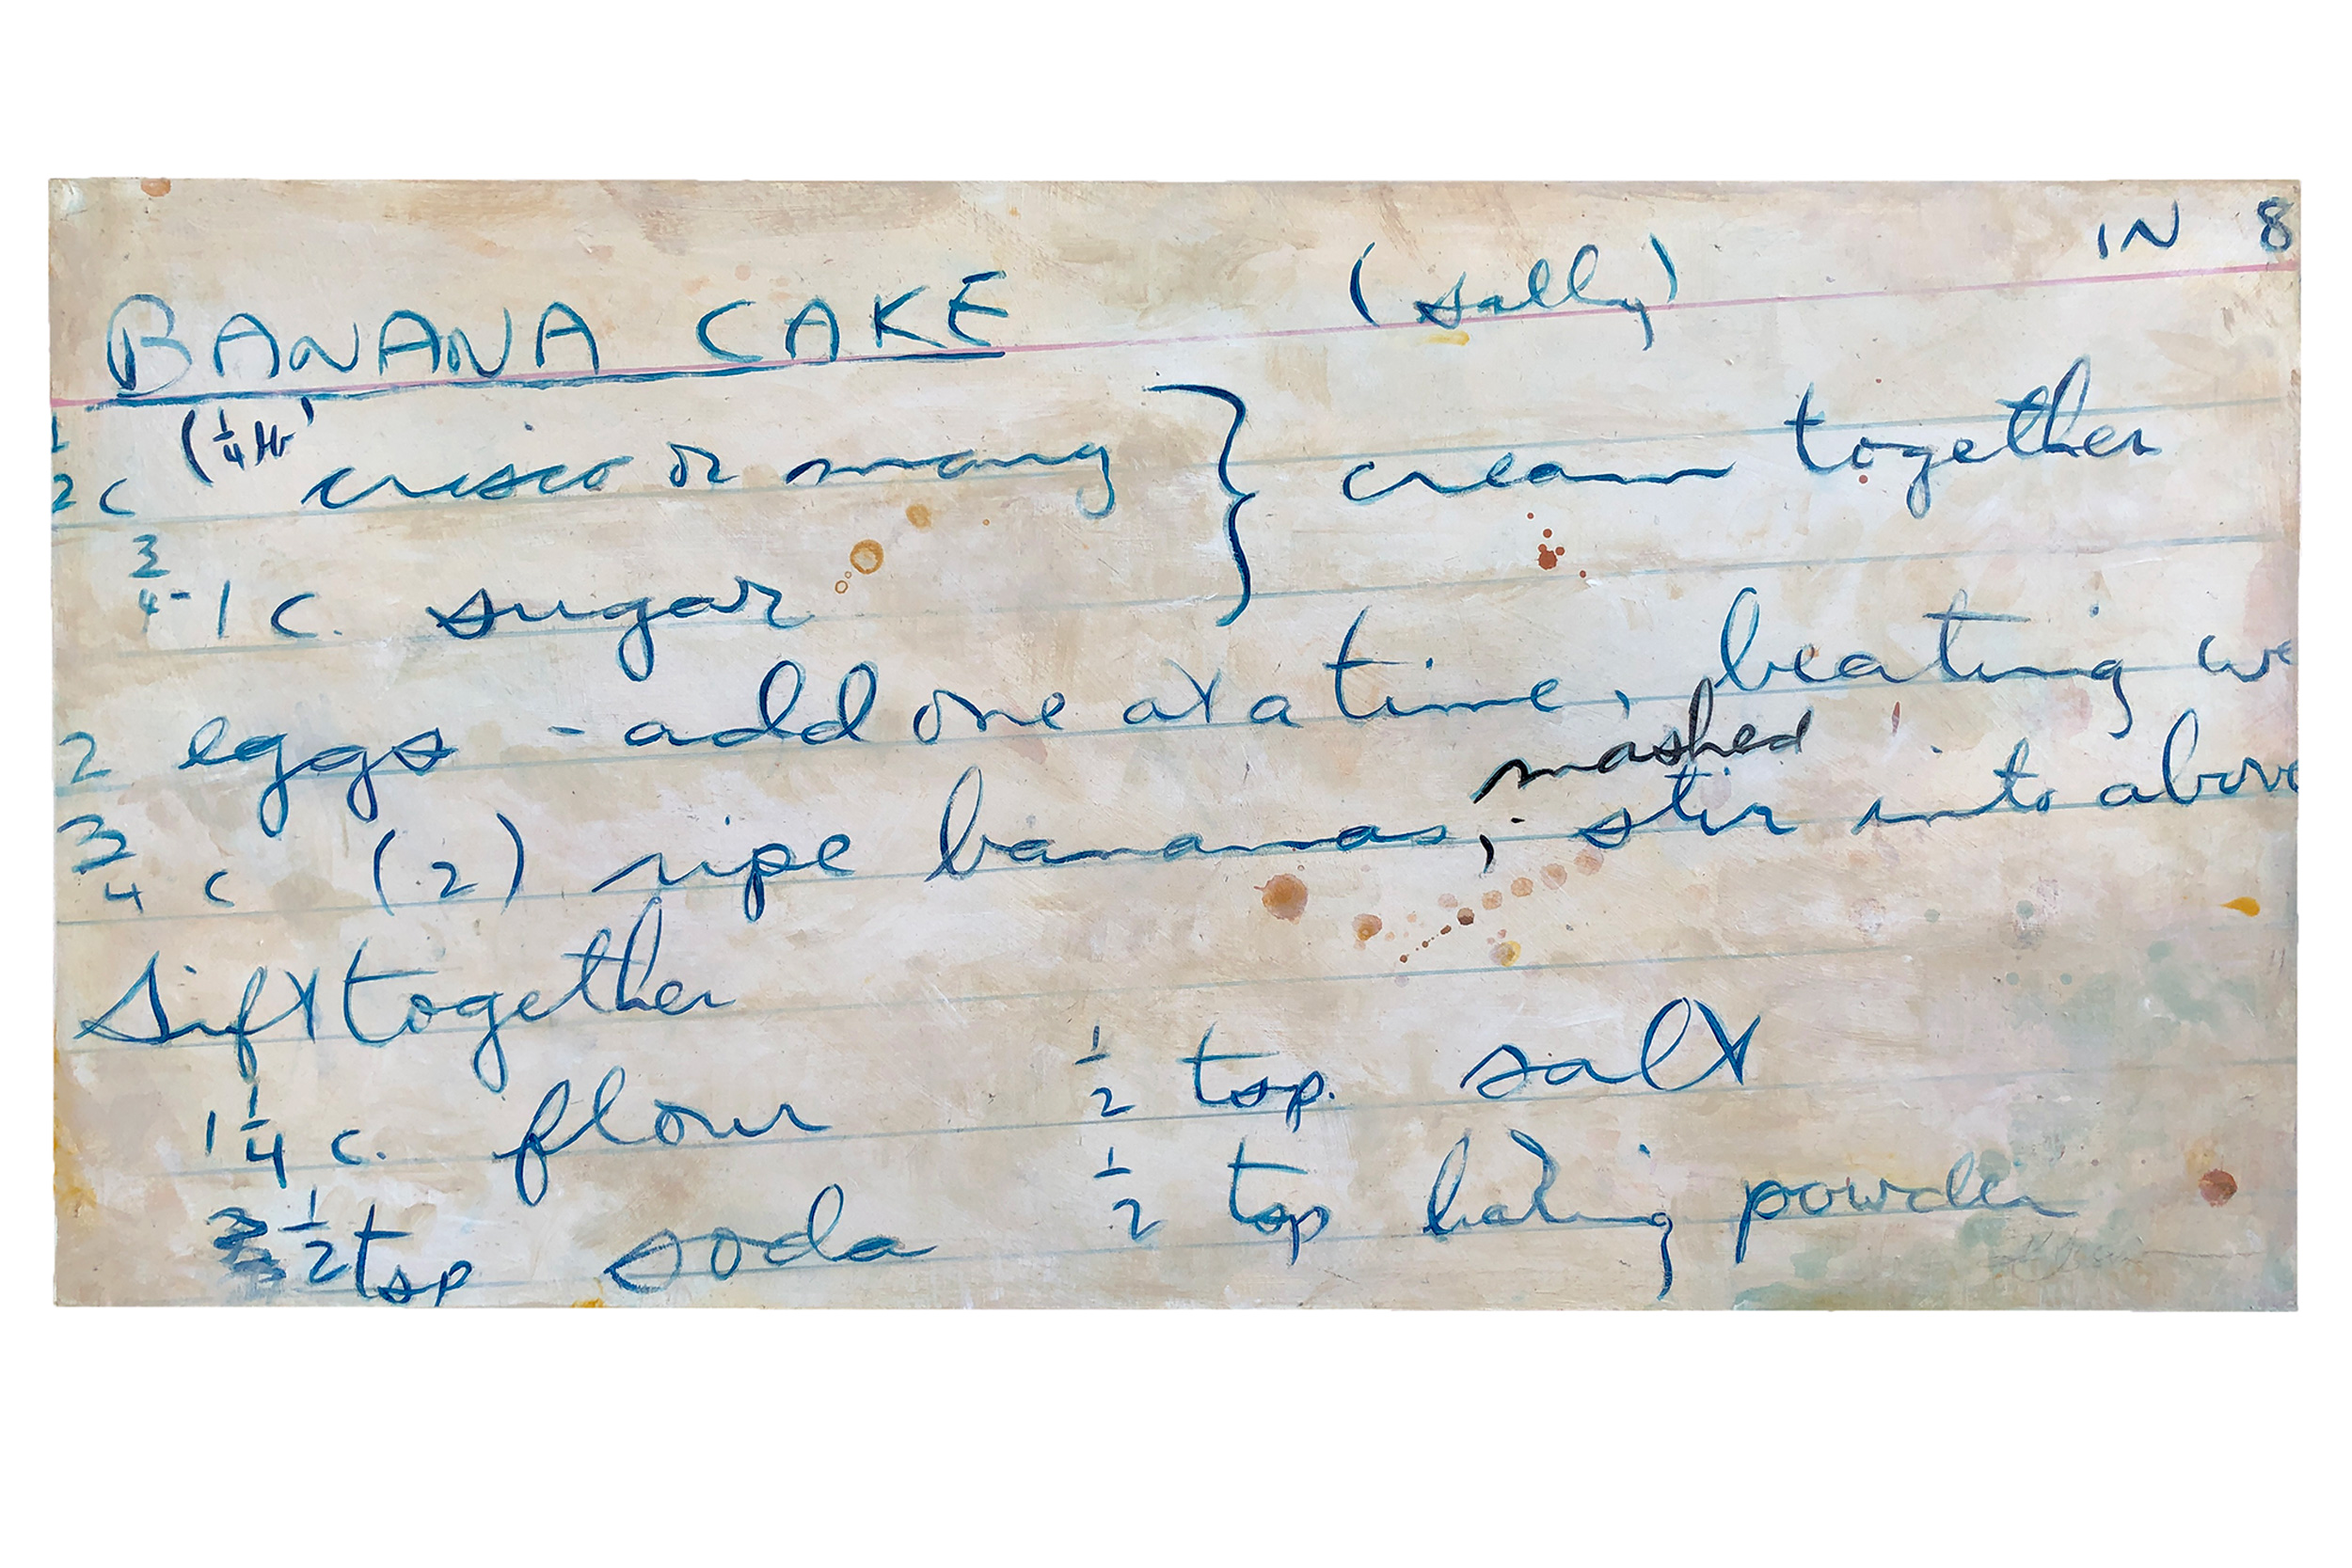 IN 8
BANANA CAKE (Sally)
1/2 c (1/4 lb) crisco or marg } cream together
3/4-1 c. sugar
2 eggs - add one at a time, beating we
mashed
3/4 c (2) ripe bananas, stir into above
Sift together
1 1/4 c. flour 1/2 tsp. salt
1/2 tsp soda 1/2 tsp baking powder